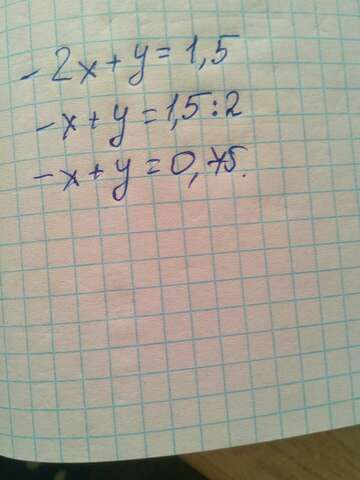 -2x+y=1,5
-x+y=1,5:2
-x+y=0,75.